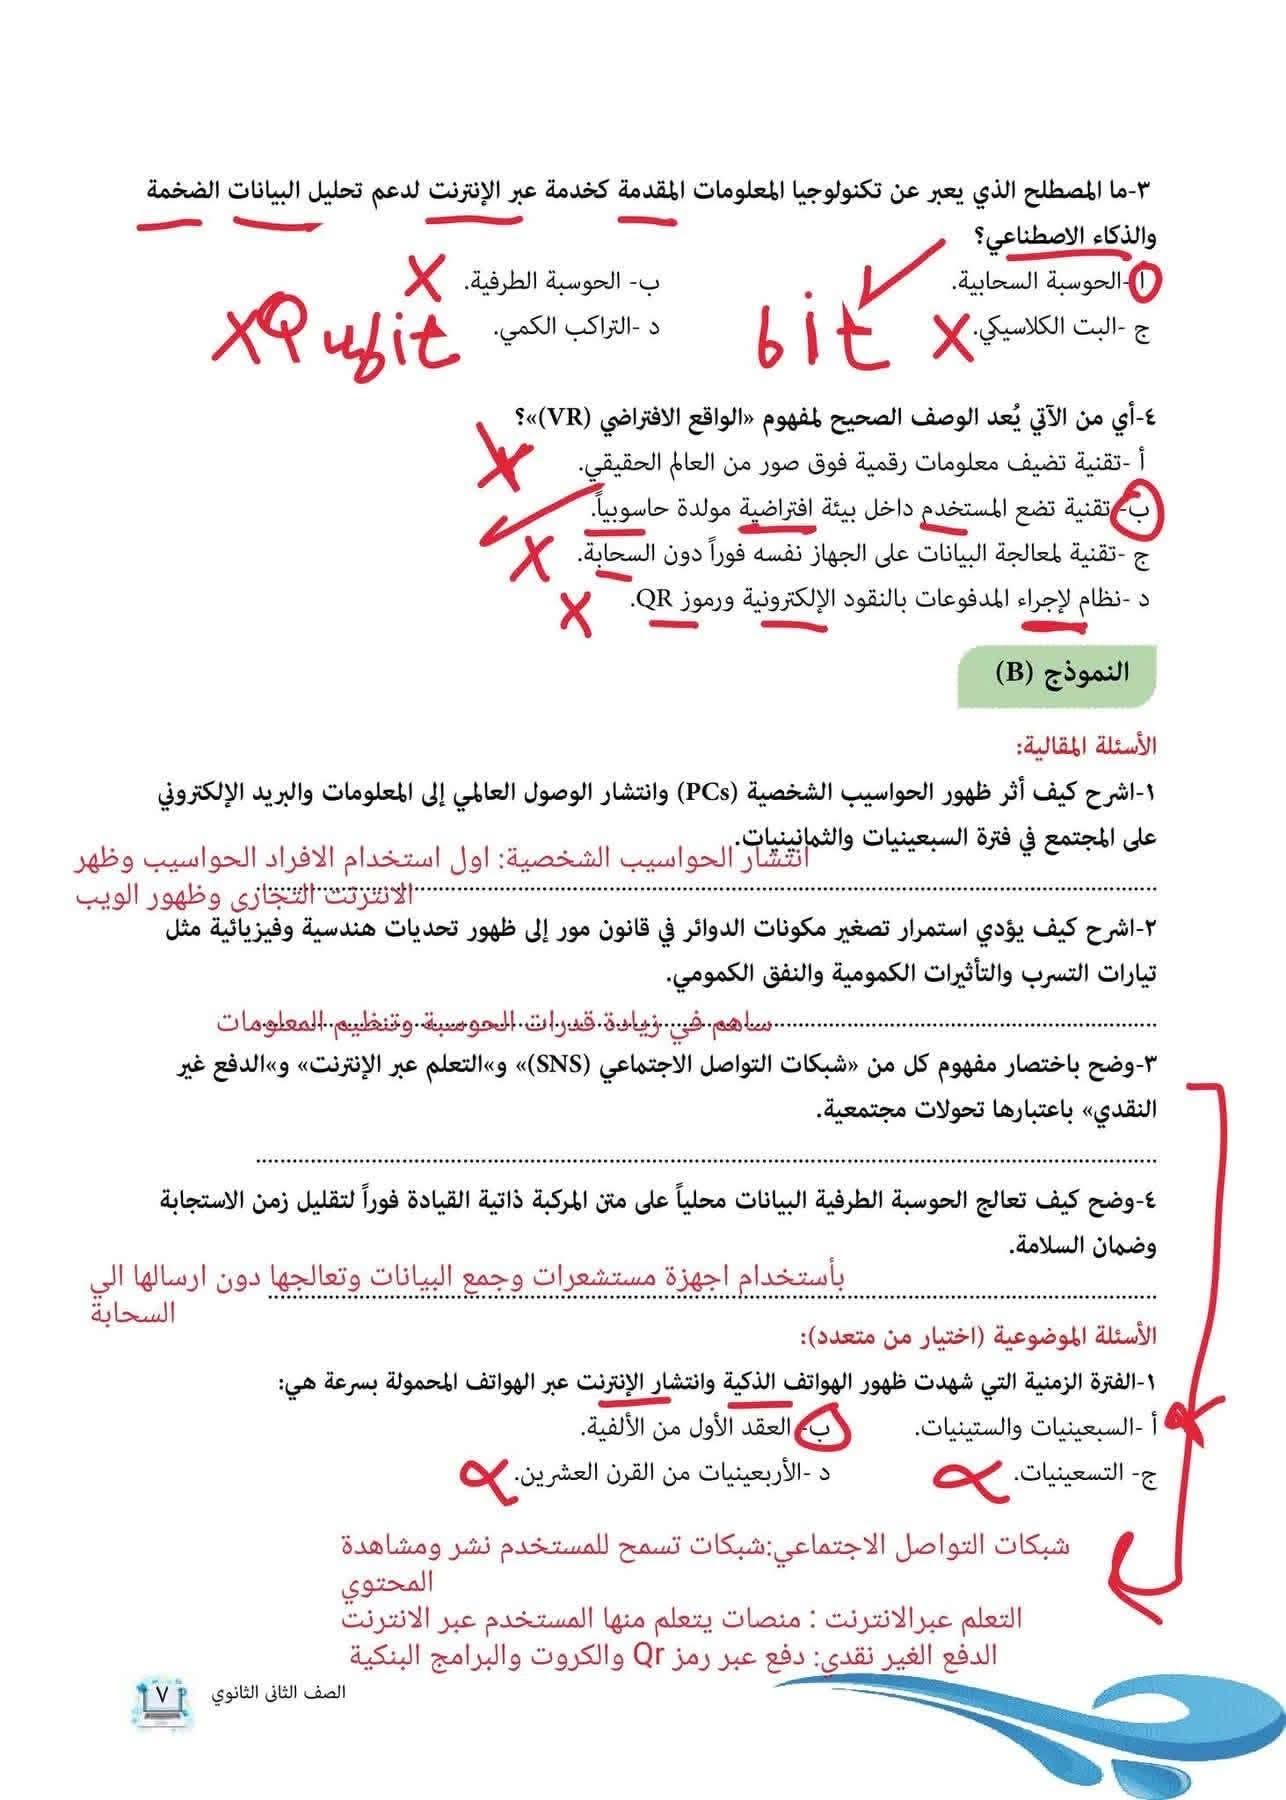 ٣-ما المصطلح الذي يعبر عن تكنولوجيا المعلومات المقدمة كخدمة عبر الإنترنت لدعم تحليل البيانات الضخمة
والذكاء الاصطناعي؟
أ -الحوسبة السحابية.
ب- الحوسبة الطرفية.
ج -البت الكلاسيكي.
bit
د -التراكب الكمي.
Qubit
٤-أي من الآتي يُعد الوصف الصحيح لمفهوم «الواقع الافتراضي (VR)»؟
أ -تقنية تضيف معلومات رقمية فوق صور من العالم الحقيقي.
ب- تقنية تضع المستخدم داخل بيئة افتراضية مولدة حاسوبياً.
ج -تقنية لمعالجة البيانات على الجهاز نفسه فوراً دون السحابة.
د -نظام لإجراء المدفوعات بالنقود الإلكترونية ورموز QR.
النموذج (B)
الأسئلة المقالية:
١-اشرح كيف أثر ظهور الحواسيب الشخصية (PCs) وانتشار الوصول العالمي إلى المعلومات والبريد الإلكتروني
على المجتمع في فترة السبعينيات والثمانينيات.
انتشار الحواسيب الشخصية: اول استخدام الافراد الحواسيب وظهر
الانترتت التجارى وظهور الويب
٢-اشرح كيف يؤدي استمرار تصغير مكونات الدوائر في قانون مور إلى ظهور تحديات هندسية وفيزيائية مثل
تيارات التسرب والتأثيرات الكمومية والنفق الكمومي.
ساهم في زيادة قدرات الحوسبة وتنظيم المعلومات
٣-وضح باختصار مفهوم كل من «شبكات التواصل الاجتماعي (SNS)» و»التعلم عبر الإنترنت» و»الدفع غير
النقدي» باعتبارها تحولات مجتمعية.
٤-وضح كيف تعالج الحوسبة الطرفية البيانات محلياً على متن المركبة ذاتية القيادة فوراً لتقليل زمن الاستجابة
وضمان السلامة.
بأستخدام اجهزة مستشعرات وجمع البيانات وتعالجها دون ارسالها الي
السحابة
الأسئلة الموضوعية (اختيار من متعدد):
١-الفترة الزمنية التي شهدت ظهور الهواتف الذكية وانتشار الإنترنت عبر الهواتف المحمولة بسرعة هي:
أ -السبعينيات والستينيات.
ب- العقد الأول من الألفية.
ج- التسعينيات.
د -الأربعينيات من القرن العشرين.
شبكات التواصل الاجتماعي:شبكات تسمح للمستخدم نشر ومشاهدة
المحتوي
التعلم عبرالانترنت : منصات يتعلم منها المستخدم عبر الانترنت
الدفع الغير نقدي: دفع عبر رمز Qr والكروت والبرامج البنكية
٧
الصف الثانى الثانوي